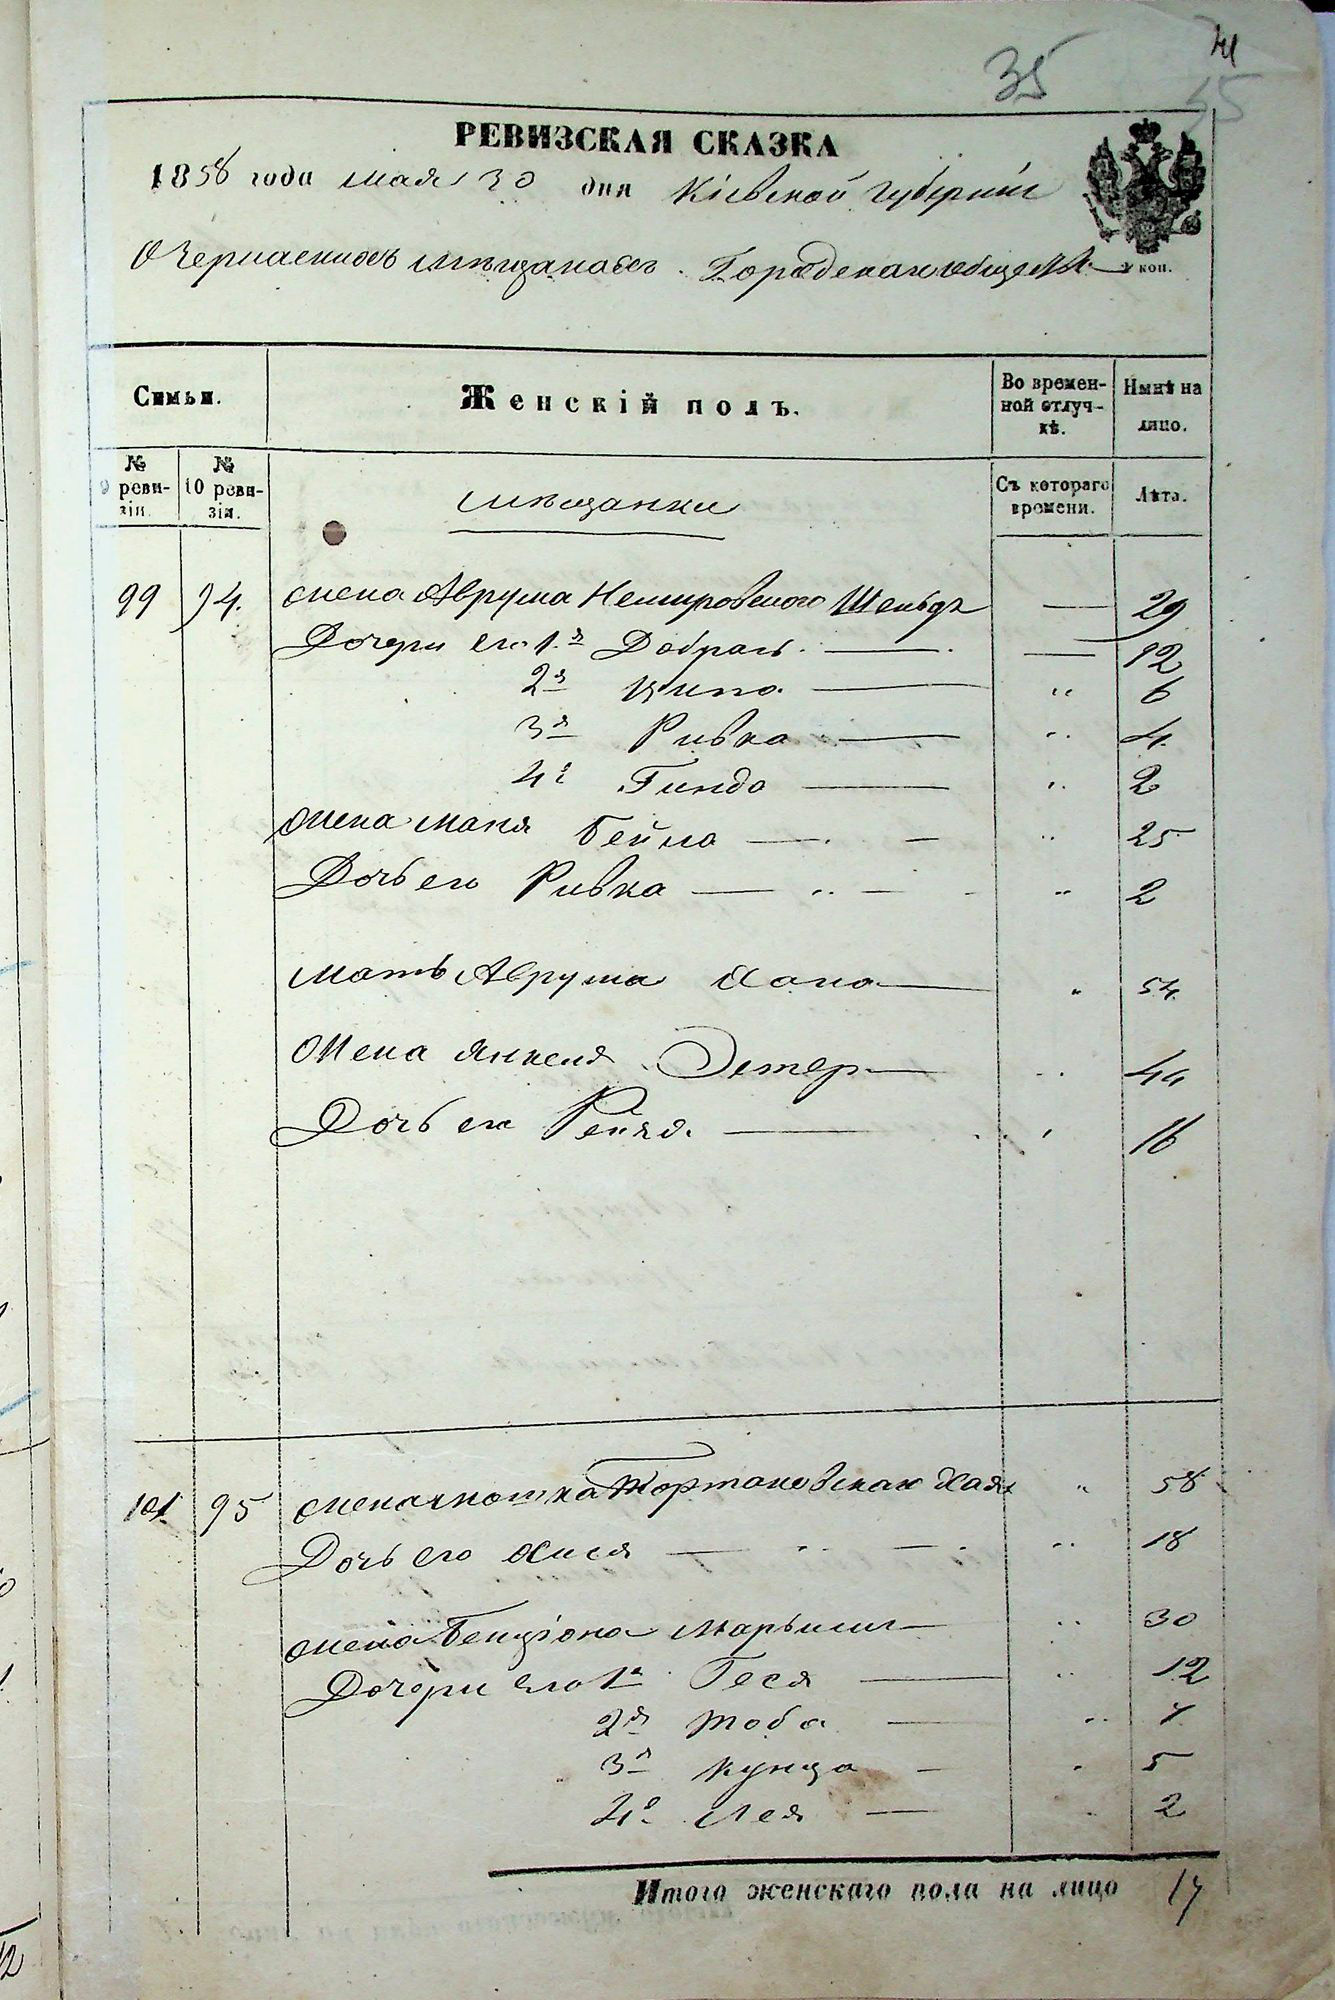 35
РЕВИЗСКАЯ СКАЗКА
1858 года мая 30 дня Кіевской губерніи
О Чернаскихъ мѣщанахъ. Городская общест.
коп.
Семьи.
Женскій полъ.
Во времен-
ной отлуч-
кѣ.
Нынѣ на
лицо.
№
9 реви-
зіи.
№
10 реви-
зіи.
Съ котораго
времени.
Лѣта.
мѣщанки
99 94. Жена Аврума Немировского Шейндъ — 29
Дочери его 1.я Добрась. — — 12
2я Ципа — " 6
3я Ривка — " 4.
4я Гинда — " 2
Жена Маня Бейла — — " 25
Дочь его Ривка — " — " 2
Мать Аврума Хана — " 54
Жена Янкеля Эстер — " 44
Дочь его Рейзя. — " 16
101 95 Жена Мошка Тортаковская Хая " 58
Дочь его Хися — " — " 18
Жена Бенціона Марьяси — " 30
Дочери его 1я Геся — " 12
2я Тоба — " 7
3я Кунца — " 5
4я Лея — 2
Итого женскаго пола на лицо 17